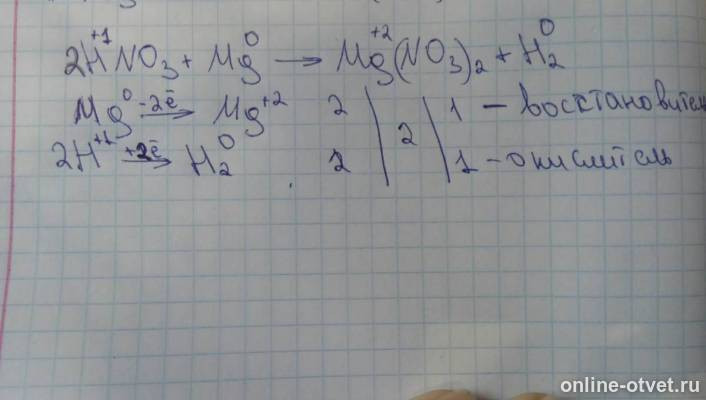 2H⁺¹NO₃ + Mg⁰ → Mg⁺²(NO₃)₂ + H₂⁰
Mg⁰ -2ē → Mg⁺² 2 | 2 | 1 – восстановител
2H⁺¹ +2ē → H₂⁰ 2 | | 1 – окислитель
online-otvet.ru